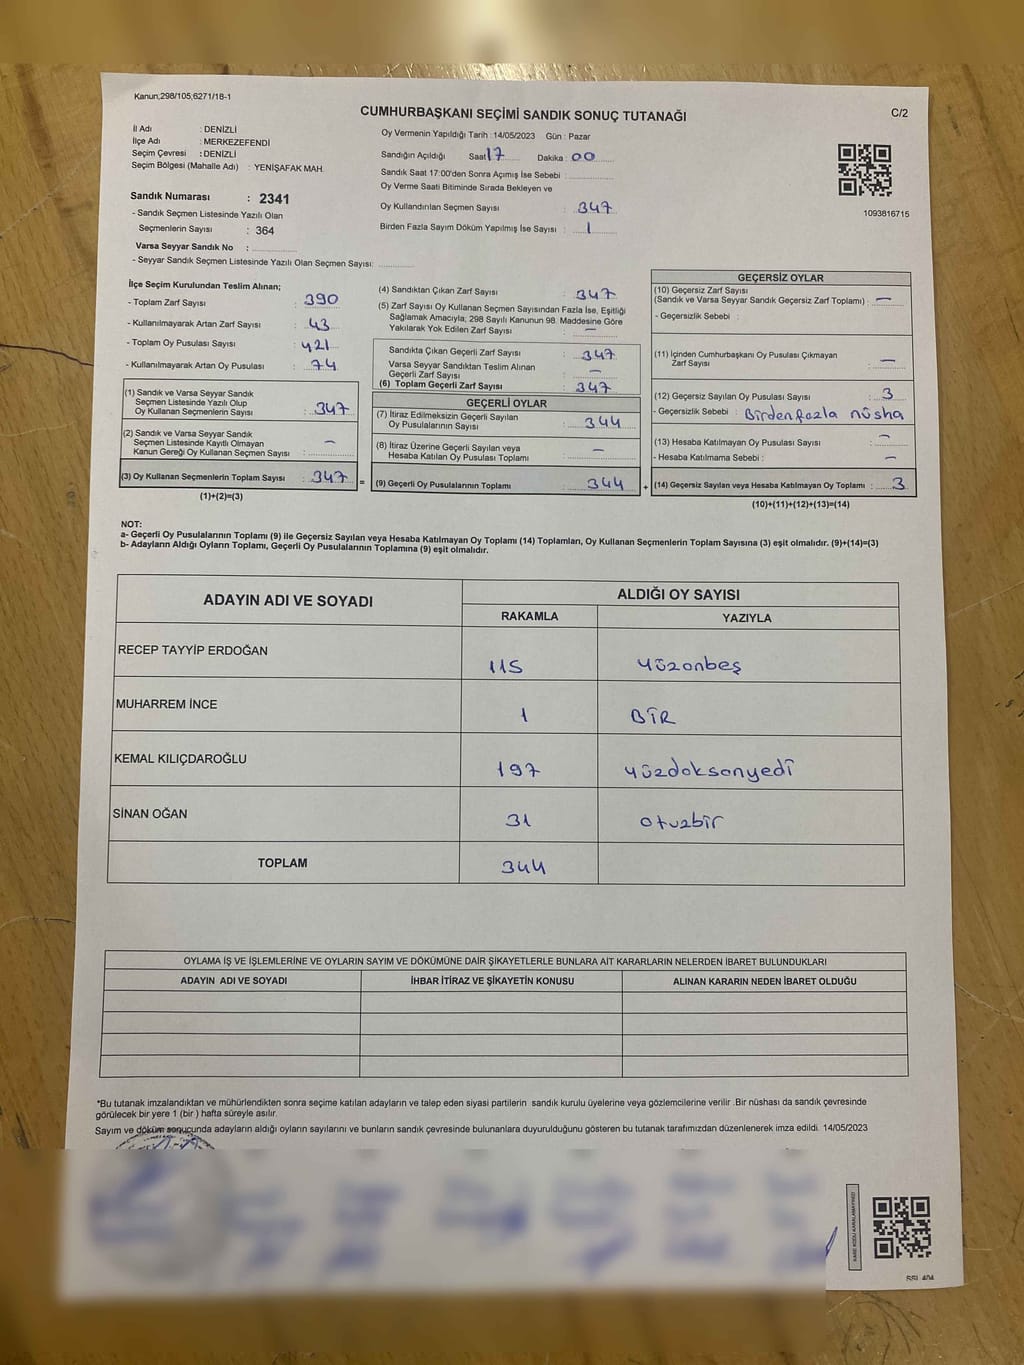 Kanun;298/105,6271/18-1
CUMHURBAŞKANI SEÇİMİ SANDIK SONUÇ TUTANAĞI
C/2
İl Adı : DENİZLİ
İlçe Adı : MERKEZEFENDİ
Seçim Çevresi : DENİZLİ
Seçim Bölgesi (Mahalle Adı) : YENİŞAFAK MAH.
Sandık Numarası : 2341
- Sandık Seçmen Listesinde Yazılı Olan
Seçmenlerin Sayısı : 364
Varsa Seyyar Sandık No :
- Seyyar Sandık Seçmen Listesinde Yazılı Olan Seçmen Sayısı:
Oy Vermenin Yapıldığı Tarih :14/05/2023 Gün : Pazar
Sandığın Açıldığı Saat 17 Dakika 00
Sandık Saat 17:00'den Sonra Açımış İse Sebebi :
Oy Verme Saati Bitiminde Sırada Bekleyen ve
Oy Kullandırılan Seçmen Sayısı : 347
Birden Fazla Sayım Döküm Yapılmış İse Sayısı : 1
1093816715
İlçe Seçim Kurulundan Teslim Alınan;
- Toplam Zarf Sayısı : 390
- Kullanılmayarak Artan Zarf Sayısı : 43
- Toplam Oy Pusulası Sayısı : 421
- Kullanılmayarak Artan Oy Pusulası : 74
(1) Sandık ve Varsa Seyyar Sandık
Seçmen Listesinde Yazılı Olup
Oy Kullanan Seçmenlerin Sayısı : 347
(2) Sandık ve Varsa Seyyar Sandık
Seçmen Listesinde Kayıtlı Olmayan
Kanun Gereği Oy Kullanan Seçmen Sayısı : -
(3) Oy Kullanan Seçmenlerin Toplam Sayısı : 347 =
(1)+(2)=(3)
(4) Sandıktan Çıkan Zarf Sayısı : 347
(5) Zarf Sayısı Oy Kullanan Seçmen Sayısından Fazla İse, Eşitliği
Sağlamak Amacıyla; 298 Sayılı Kanunun 98. Maddesine Göre
Yakılarak Yok Edilen Zarf Sayısı : -
Sandıkta Çıkan Geçerli Zarf Sayısı : 347
Varsa Seyyar Sandıktan Teslim Alınan
Geçerli Zarf Sayısı : -
(6) Toplam Geçerli Zarf Sayısı : 347
GEÇERLİ OYLAR
(7) İtiraz Edilmeksizin Geçerli Sayılan
Oy Pusulalarının Sayısı : 344
(8) İtiraz Üzerine Geçerli Sayılan veya
Hesaba Katılan Oy Pusulası Toplamı : -
(9) Geçerli Oy Pusulalarının Toplamı : 344 +
GEÇERSİZ OYLAR
(10) Geçersiz Zarf Sayısı
(Sandık ve Varsa Seyyar Sandık Geçersiz Zarf Toplamı) : -
- Geçersizlik Sebebi :
(11) İçinden Cumhurbaşkanı Oy Pusulası Çıkmayan
Zarf Sayısı : -
(12) Geçersiz Sayılan Oy Pusulası Sayısı : 3
- Geçersizlik Sebebi : Birden fazla nüsha
(13) Hesaba Katılmayan Oy Pusulası Sayısı : -
- Hesaba Katılmama Sebebi : -
(14) Geçersiz Sayılan veya Hesaba Katılmayan Oy Toplamı : 3
(10)+(11)+(12)+(13)=(14)
NOT:
a- Geçerli Oy Pusulalarının Toplamı (9) ile Geçersiz Sayılan veya Hesaba Katılmayan Oy Toplamı (14) Toplamları, Oy Kullanan Seçmenlerin Toplam Sayısına (3) eşit olmalıdır. (9)+(14)=(3)
b- Adayların Aldığı Oyların Toplamı, Geçerli Oy Pusulalarının Toplamına (9) eşit olmalıdır.
ADAYIN ADI VE SOYADI
ALDIĞI OY SAYISI
RAKAMLA YAZIYLA
RECEP TAYYİP ERDOĞAN 115 yüzonbeş
MUHARREM İNCE 1 BİR
KEMAL KILIÇDAROĞLU 197 yüzdoksanyedi
SİNAN OĞAN 31 otuzbir
TOPLAM 344
OYLAMA İŞ VE İŞLEMLERİNE VE OYLARIN SAYIM VE DÖKÜMÜNE DAİR ŞİKAYETLERLE BUNLARA AİT KARARLARIN NELERDEN İBARET BULUNDUKLARI
ADAYIN ADI VE SOYADI İHBAR İTİRAZ VE ŞİKAYETİN KONUSU ALINAN KARARIN NEDEN İBARET OLDUĞU
*Bu tutanak imzalandıktan ve mühürlendikten sonra seçime katılan adayların ve talep eden siyasi partilerin sandık kurulu üyelerine veya gözlemcilerine verilir .Bir nüshası da sandık çevresinde
görülecek bir yere 1 (bir ) hafta süreyle asılır.
Sayım ve döküm sonucunda adayların aldığı oyların sayılarını ve bunların sandık çevresinde bulunanlara duyurulduğunu gösteren bu tutanak tarafımızdan düzenlenerek imza edildi. 14/05/2023
KARE KODU KARALAMAYINIZ!